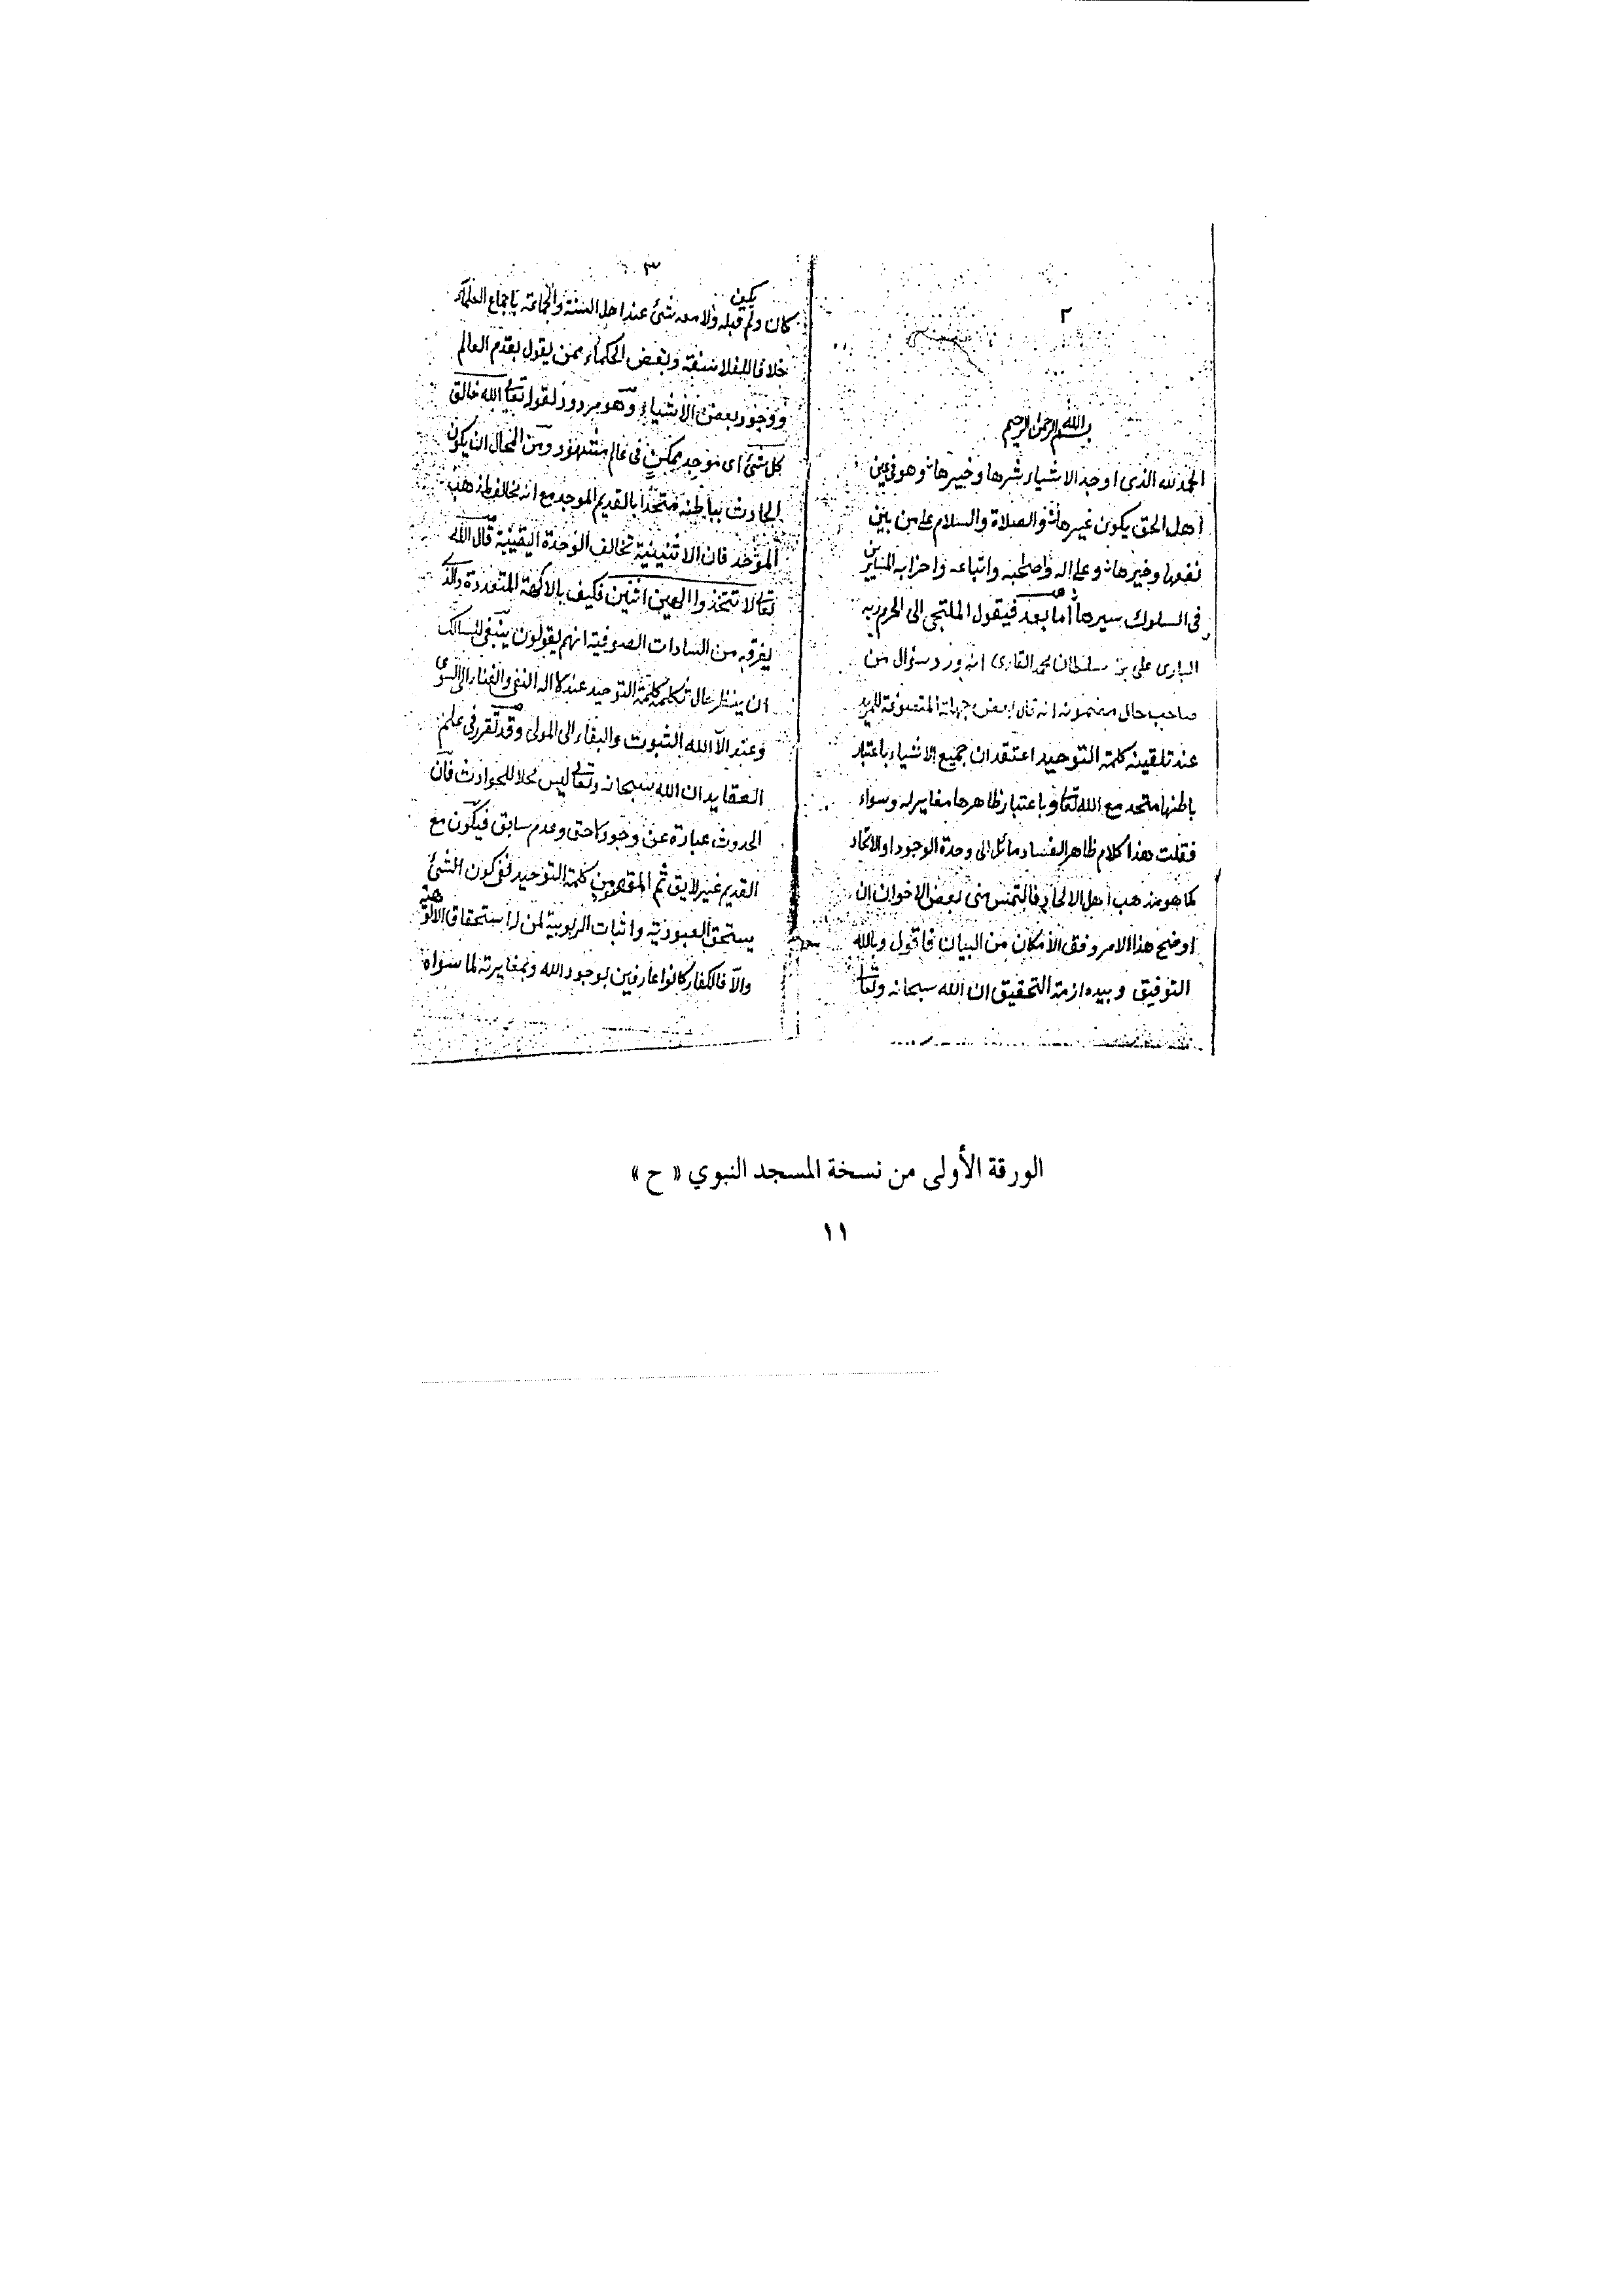 ٢
بسم الله الرحمن الرحيم
الحمد لله الذى اوجد الاشياء شرها وخيرها وهو فى عين
اهل الحق يكون غيرها والصلاة والسلام على من بين
نفعها وخيرها وعلى اله واصحبه واتباعه واحزابه السايرين
فى السلوك سيرها اما بعد فيقول الملتجى الى الحرم ربه
البارى على بن سلطان محمد القارى انه ورد سؤال من
صاحب حال مضمونه انه قال بعض جهلة المتصوفة للمريد
عند تلقينه كلمة التوحيد اعتقد ان جميع الاشياء باعتبار
باطنها متحد مع الله تعالى وباعتبار ظاهرها مغاير له وسواه
فقلت هذا كلام ظاهر الفساد مائل الى وحدة الوجود او الاتحاد
كما هو مذهب اهل الالحاد فالتمس منى بعض الاخوان ان
اوضح هذا الامر وفق الامكان من البيان فاقول وبالله
التوفيق وبيده ازمة التحقيق ان الله سبحانه وتعالى
٣
كان ولم يكن قبله ولا معه شئ عند اهل السنة والجماعة باجماع العلماء
خلافا للفلاسفة وبعض الحكماء ممن يقول بقدم العالم
ووجود بعض الاشياء وهو مردود لقوله تعالى الله خالق
كل شئ اى موجد ممكن فى عالم مشهود ومن المحال ان يكون
الحادث بباطنه متحدا بالقديم الموجد مع انه مخالف لمذهب
الموحد فان الاثنينية تخالف الوحدة اليقينية قال الله
تعالى لا تتخذوا الهين اثنين فكيف بالالهة المتعددة والذى
يعرفه من السادات الصوفية انهم يقولون ينبغى للسالك
ان ينظر حال تكلمه كلمة التوحيد عند لا اله النفى والفناء الى السوى
وعند الا الله الثبوت والبقاء الى المولى وقد تقرر فى علم
العقايد ان الله سبحانه وتعالى ليس محلا للحوادث فان
الحدوث عبارة عن وجود لاحق وعدم سابق فيكون مع
القديم غير لايق ثم المقصود من كلمة التوحيد نفى كون الشئ
يستحق العبودية واثبات الربوبية لمن له استحقاق الالوهية
والا فالكفار كانوا عارفين بوجود الله وبمغايرته لما سواه
الورقة الأولى من نسخة المسجد النبوي « ح »
١١